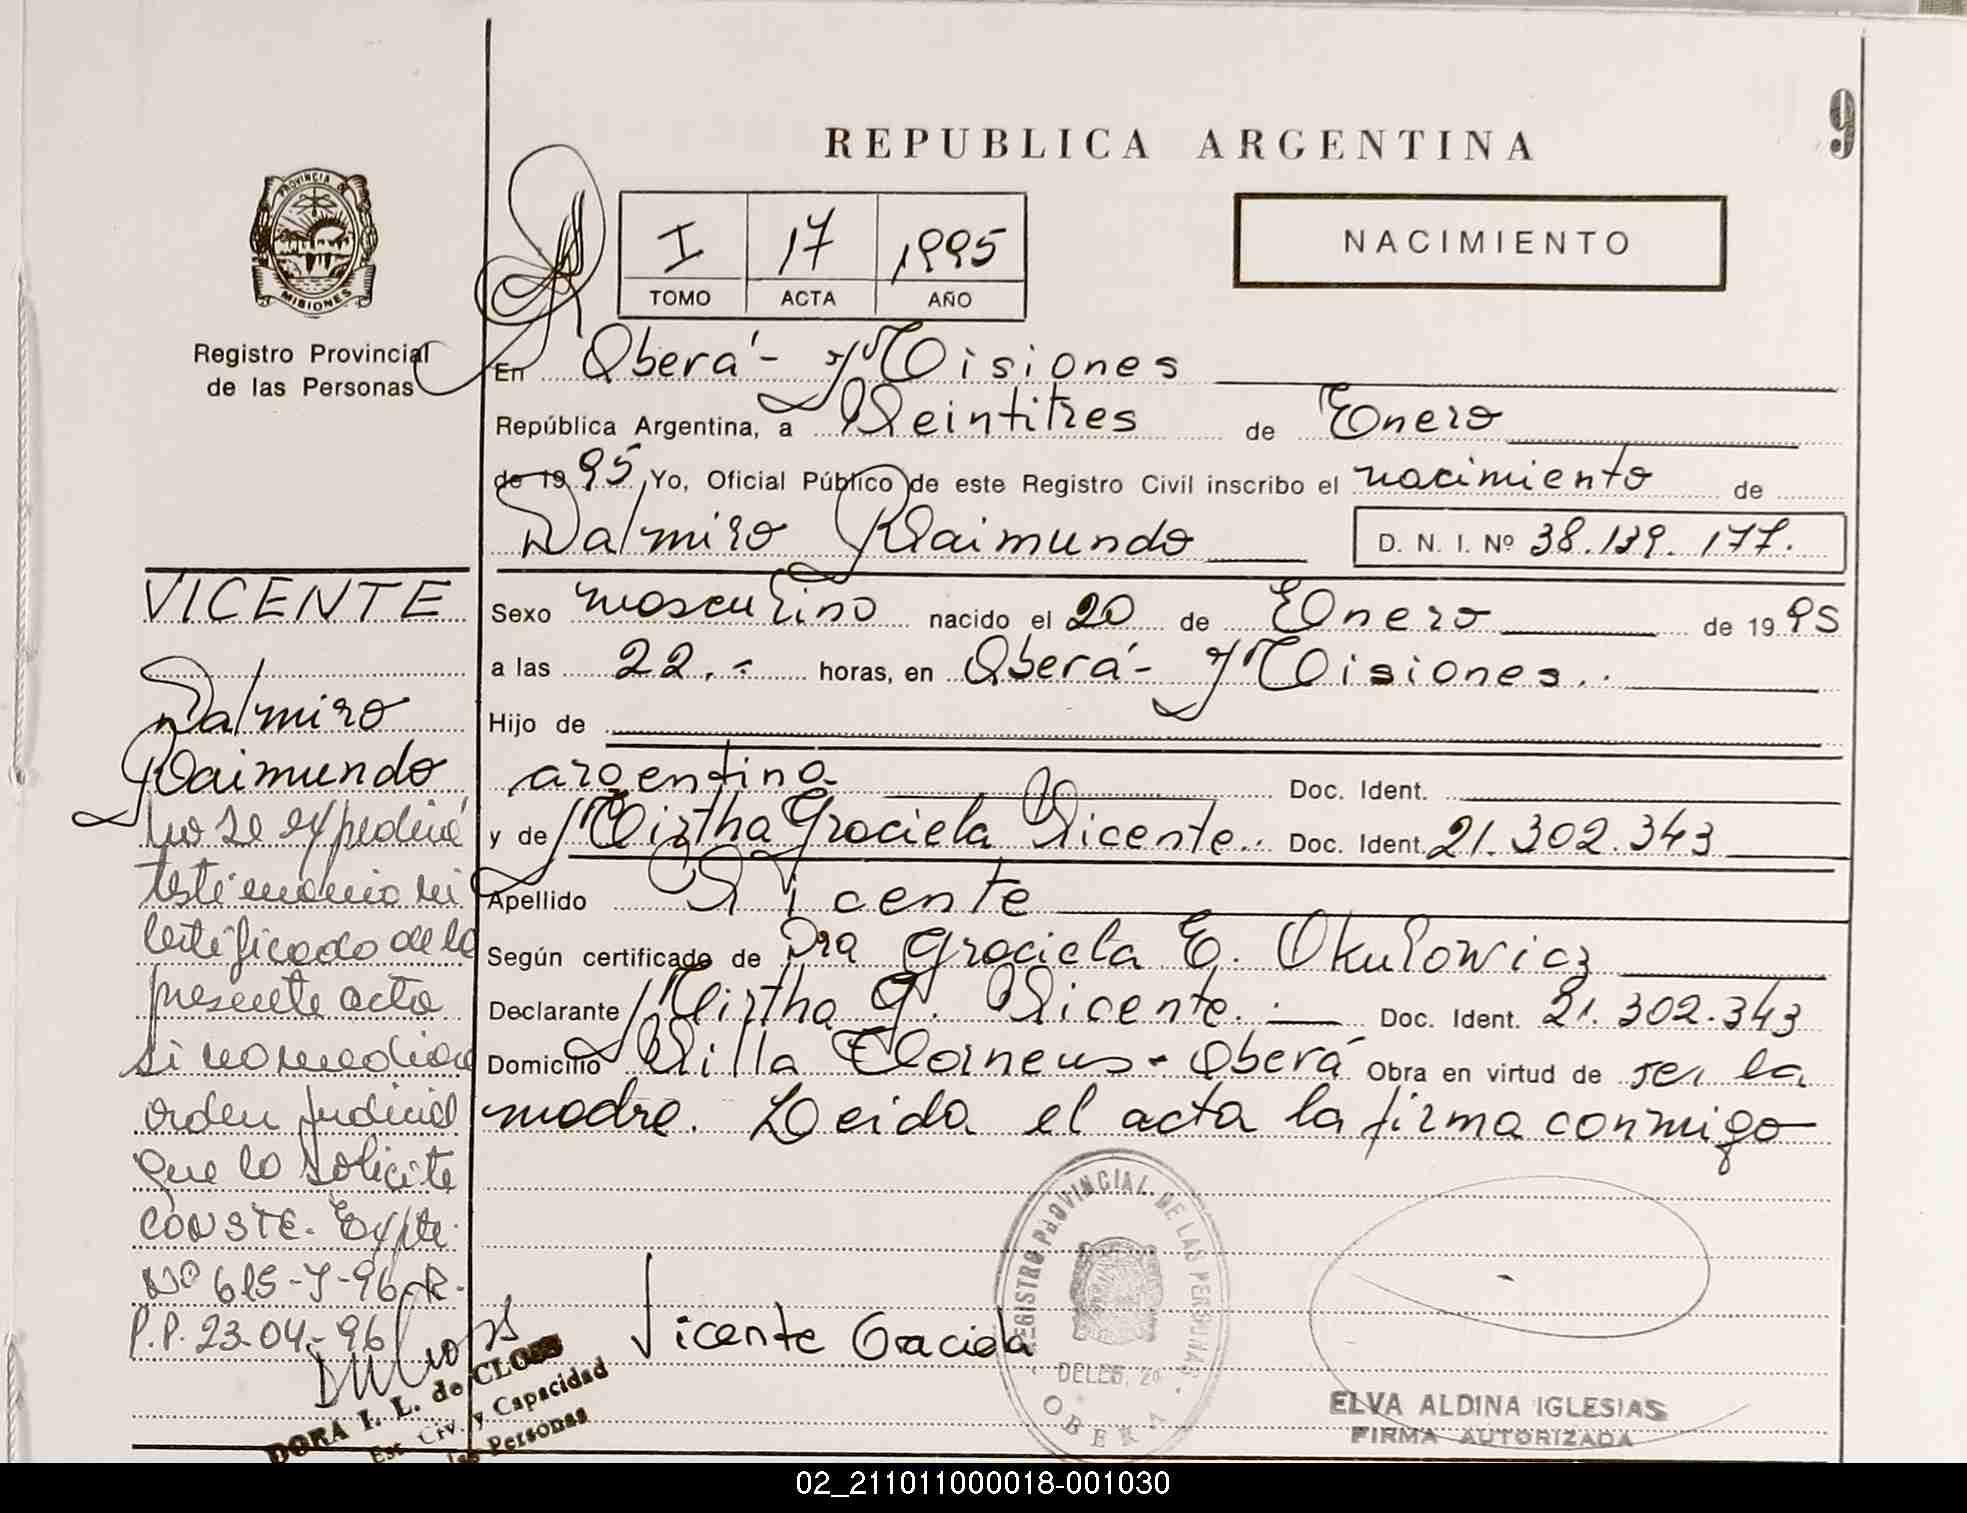 REPUBLICA ARGENTINA
9
PROVINCIA DE
MISIONES
Registro Provincial
de las Personas
I 17 1995
TOMO ACTA AÑO
NACIMIENTO
En Oberá - Misiones
República Argentina, a Veintitres de Enero
de 19 95 Yo, Oficial Público de este Registro Civil inscribo el nacimiento de
Dalmiro Raimundo D. N. I. Nº 38.139.177.
Sexo masculino nacido el 20 de Enero de 19 95
a las 22.- horas, en Oberá - Misiones.
Hijo de
argentina Doc. Ident.
y de Mirtha Graciela Vicente. Doc. Ident. 21.302.343
Apellido Vicente
Según certificado de Dra Graciela E. Okulowicz
Declarante Mirtha G. Vicente. Doc. Ident. 21.302.343
Domicilio Villa - Oberá Obra en virtud de ser la
madre. Leida el acta la firma conmigo
VICENTE
Dalmiro
Raimundo
No se expedirá
testimonio ni
certificado de la
presente acta
si no media
orden judicial
que lo solicite
CONSTE. Expte.
Nº 615-I-96-R.
P.P. 23-04-96
DORA I. L. de CLOSS
Est. Civ. y Capacidad
las Personas
Vicente Graciela
REGISTRO PROVINCIAL DE LAS PERSONAS
DELEG. 2ª
OBERA
ELVA ALDINA IGLESIAS
FIRMA AUTORIZADA
02_211011000018-001030